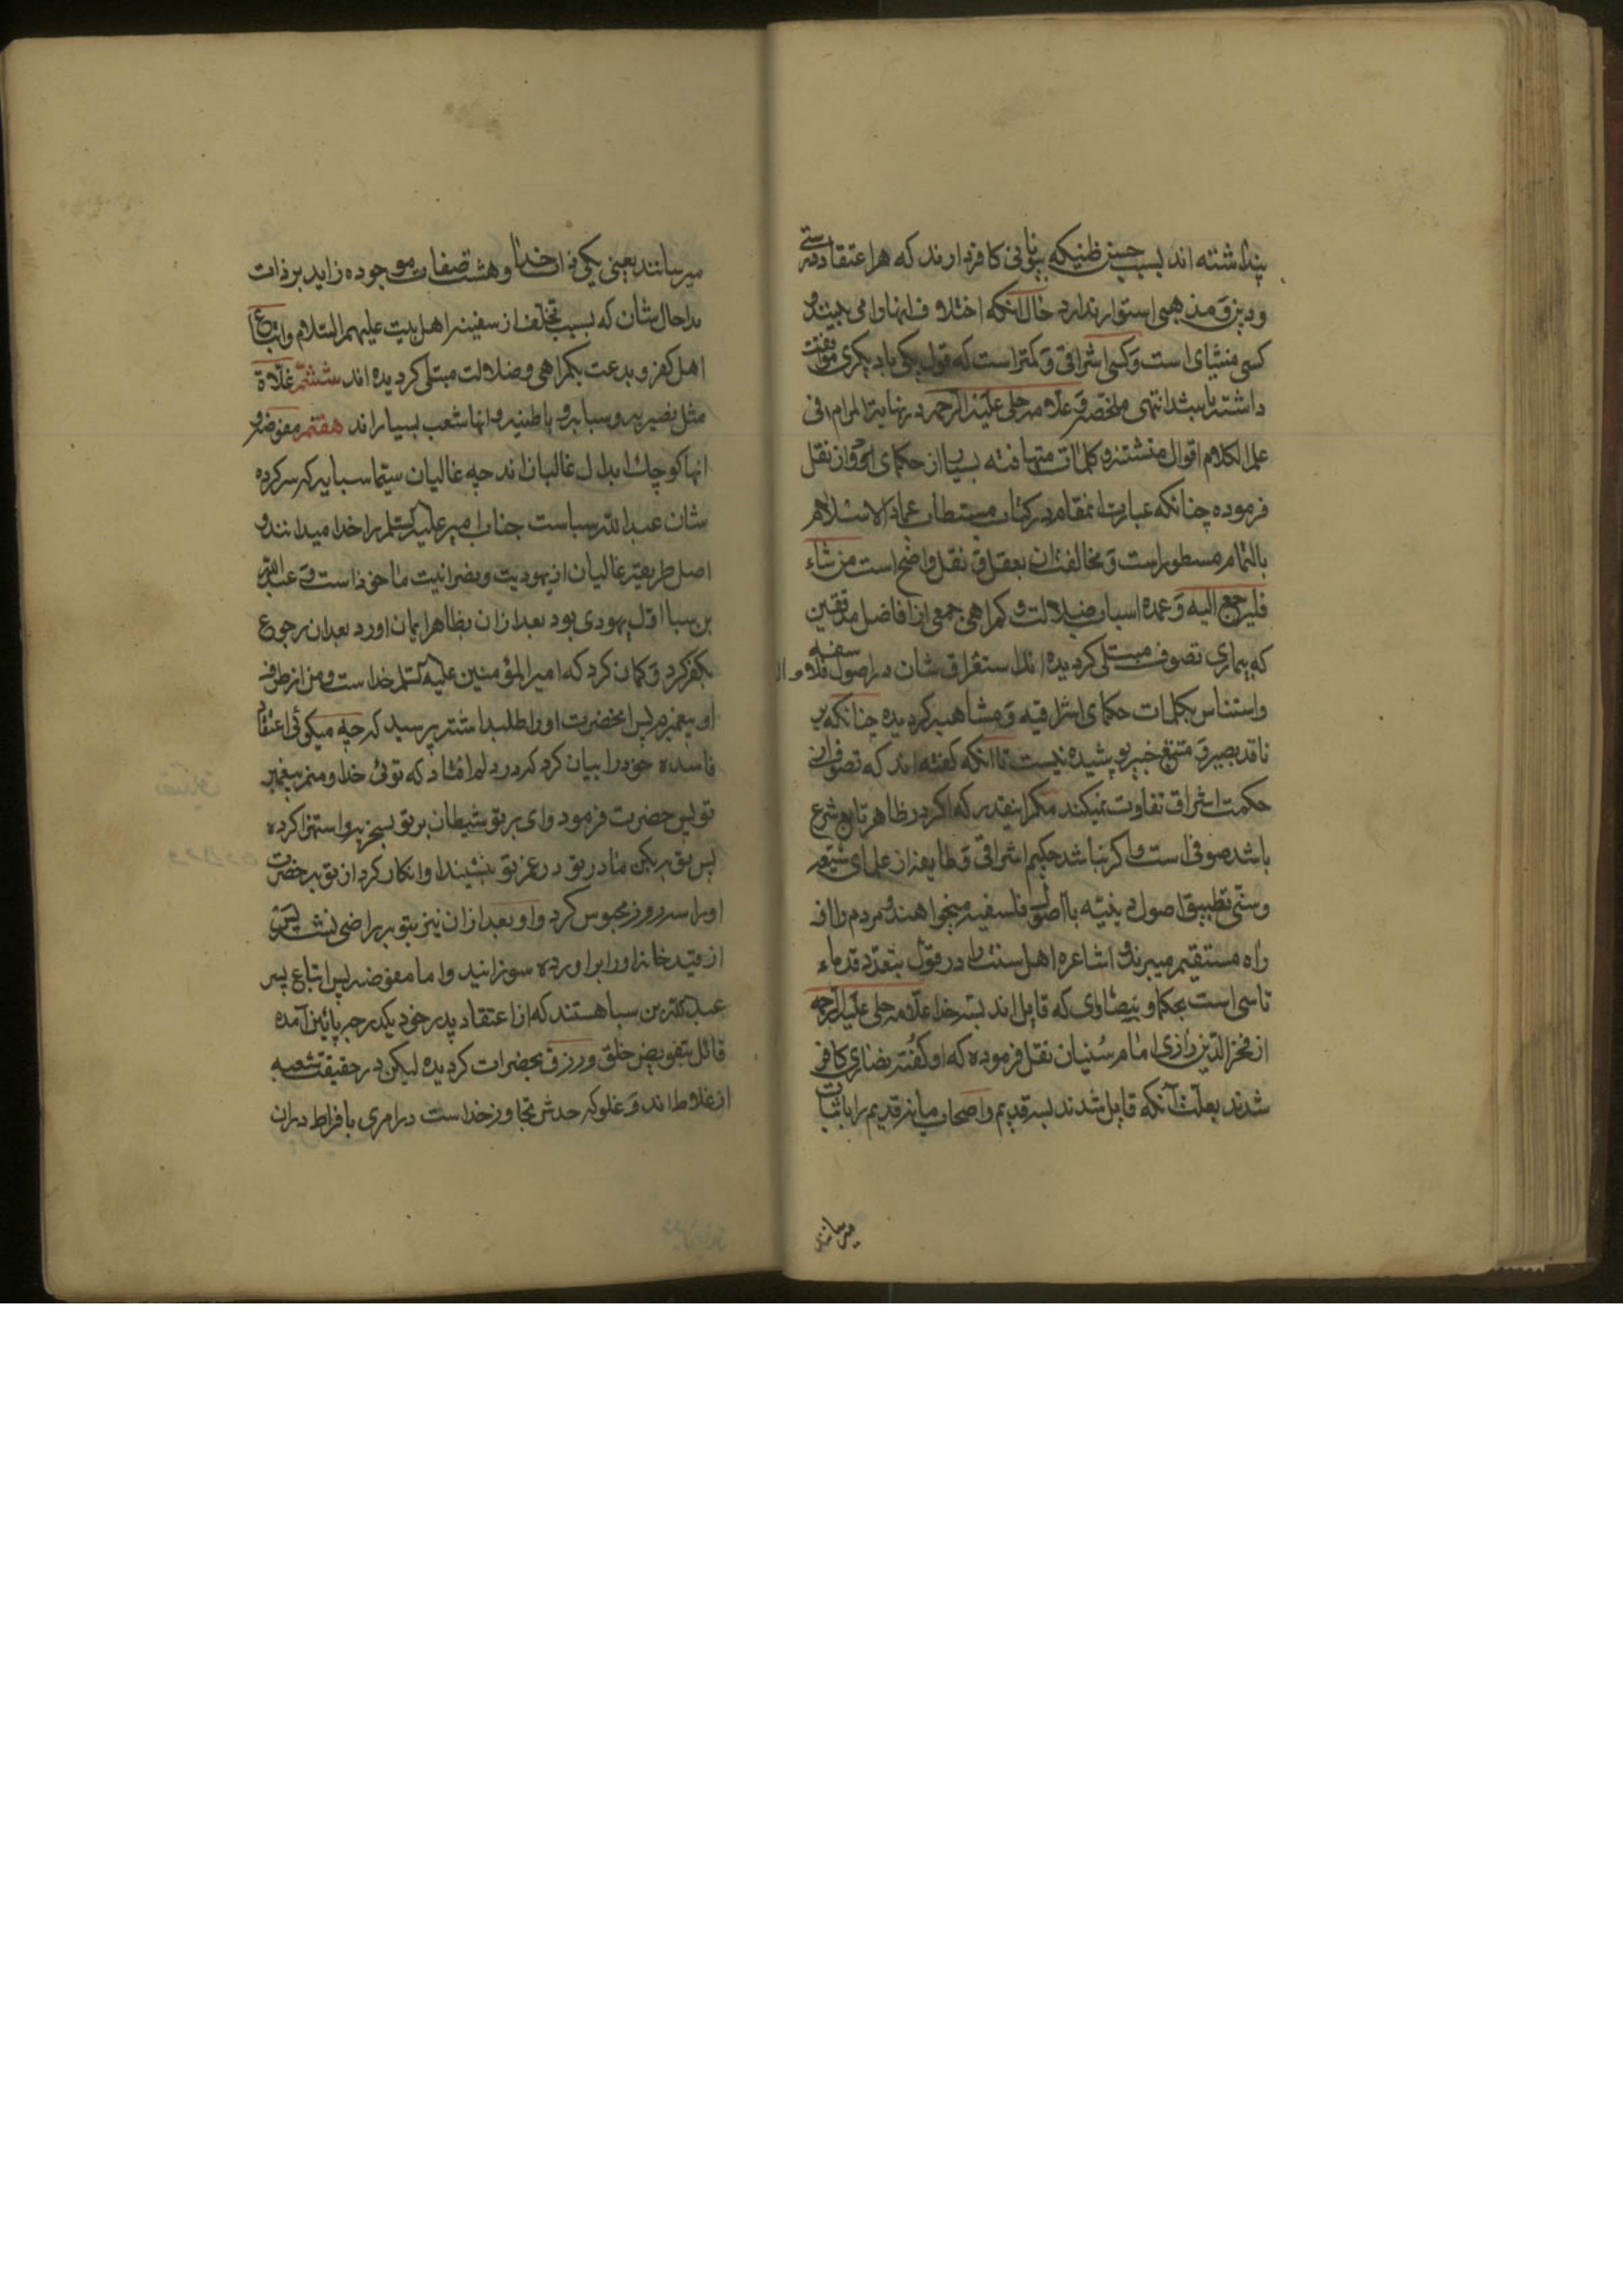 پنداشته اند بسبب حسن ظنیکه بیونانی کافر دارند که هر اعتقاد درستی
و دین و مذهبی استوار ندارد حال آنکه اختلاف انها را می بینند و
کسی مشای است و کسی اشراقی و کمتر است که قول یکی با دیگری موافقت
داشته باشد انتهی ملخصه و علامه حلی علیه الرحمه در نهایة المرام فی
علم الکلام اقوال متشتته و کلمات متهافته بسیار از حکمای نقل
فرموده چنانکه عبارت انمقام در کتاب مستطاب عماد الاسلام
بالتمام مسطور است و مخالفت ان بعقل و نقل واضح است من شاء
فلیرجع الیه و عمده اسباب ضلالت و گمراهی جمعی از افاضل مدققین
که بیماری تصوف مبتلی گردیده اند استغراق شان در اصول فلاسفه
و استیناس بکلمات حکمای اشراقیه و مشاهیر گردیده چنانکه بر
ناقد بصیر و متتبع خبیر پوشیده نیست تا انکه گفته اند که تصوف از
حکمت اشراق تفاوت نمیکند مگر اینقدر که اگر در ظاهر تابع شرع
باشد صوفی است و اگر نباشد حکیم اشراقی و طایفه از علمای شیعه
و سنی تطبیق اصول دینیه با اصول فلسفیه میخواهند و مردم را از
راه مستقیم میبرند و اشاعره اهل سنت را در قول بتعدد قدماء
تاسی است بحکما و نصاری که قایل اند بسه خدا علامه حلی علیه الرحمه
از فخر الدین رازی امام سنیان نقل فرموده که او گفته نصاری کافر
شدند بعلت آنکه قایل شدند بسه قدیم و اصحاب ما نه قدیم را باثبات
میرسانند
میرسانند یعنی یکی ذات خدا و هشت صفات موجوده زاید بر ذات
بدا حال شان که بسبب تخلف از سفینه اهل بیت علیهم السلام و اتباع
اهل کفر و بدعت بگمراهی و ضلالت مبتلی گردیده اند ششم غلاة
مثل نصیریه و سبائیه و باطنیه و انها شعب بسیار اند هفتم مفوضه و
انها کوچک ابدال غالیان اند چه غالیان سیما سبائیه که سرکرده
شان عبدالله سباست جناب امیر علیه السلم را خدا میدانند و
اصل طریقه غالیان از یهودیت و نصرانیت ماخوذ است و عبدالله
بن سبا اول یهودی بود بعد ازان بظاهر ایمان اورد بعد ان رجوع
بکفر کرد و گمان کرد که امیر المؤمنین علیه السلم خداست و من از طرف
او پیغمبرم پس انحضرت او را طلب داشته پرسید که چه میگوئی اعتقاد
فاسده خود را بیان کرد که در دلم افتاد که توئی خدا و منم پیغمبر
تو پس حضرت فرمود وای بر تو شیطان بر تو سخریه و استهزا کرده
پس توبه بکن مادر تو در غم تو بنشیند او انکار کرد از توبه حضرت
او را سه روز محبوس کرد و او بعد ازان نیز بتوبه راضی نشد پس
از قید خانه او را براورده سوزانید و اما مفوضه پس اتباع پسر
عبدالله بن سبا هستند که از اعتقاد پدر خود یکدرجه پائین آمده
قائل بتفویض خلق و رزق بحضرات گردیده لیکن در حقیقت شعبه
از غلاة اند و غلو که حدش تجاوز خداست در امری با فراط دران